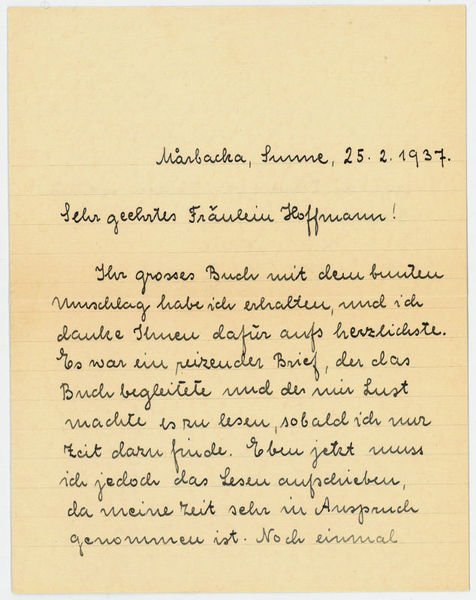 Mårbacka, Sunne, 25. 2. 1937.
Sehr geehrtes Fräulein Hoffmann!
Ihr grosses Buch mit dem bunten
Umschlag habe ich erhalten, und ich
danke Ihnen dafür aufs herzlichste.
Es war ein reizender Brief, der das
Buch begleitete und der mir Lust
machte es zu lesen, sobald ich nur
Zeit dazu finde. Eben jetzt muss
ich jedoch das Lesen aufschieben,
da meine Zeit sehr in Anspruch
genommen ist. Noch einmal